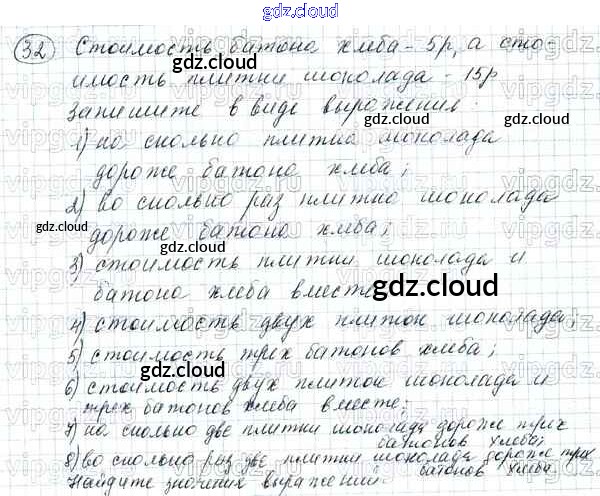 gdz.cloud
32 Стоимость батона хлеба - 5р, а сто-
имость плитки шоколада - 15р
gdz.cloud
Запишите в виде выражения:
1) на сколько плитка шоколада
gdz.cloud
дороже батона хлеба;
2) во сколько раз плитка шоколада
gdz.cloud
gdz.cloud
дороже батона хлеба;
3) стоимость плитки шоколада и
gdz.cloud
батона хлеба вместе
gdz.cloud
4) стоимость двух плиток шоколада;
gdz.cloud
5) стоимость трех батонов хлеба;
gdz.cloud
6) стоимость двух плиток шоколада и
трех батонов хлеба вместе;
7) на сколько две плитки шоколада дороже трех
батонов хлеба;
8) во сколько раз две плитки шоколада дороже трех
gdz.cloud
gdz.cloud
батонов хлеба.
Найдите значения выражений.